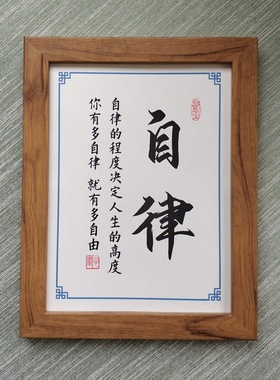 自律
自律的程度决定人生的高度
你有多自律 就有多自由